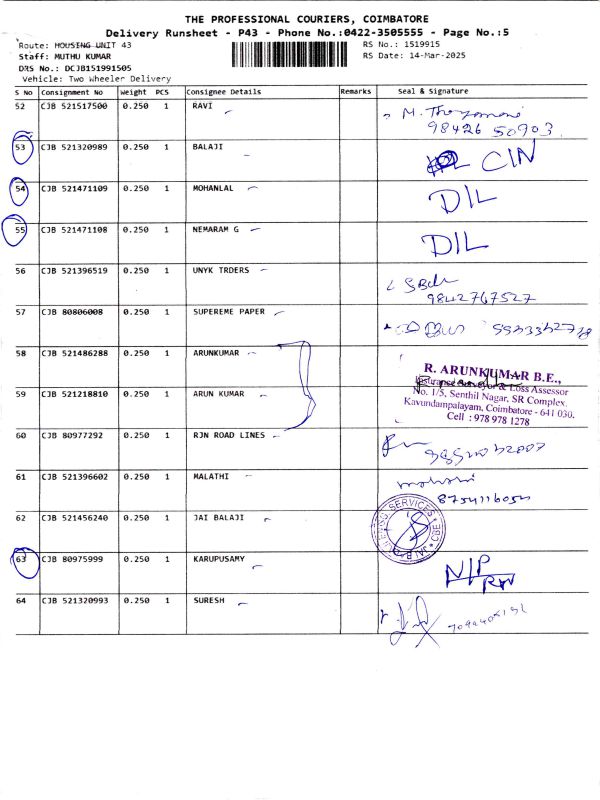 THE PROFESSIONAL COURIERS, COIMBATORE
Delivery Runsheet - P43 - Phone No.:0422-3505555 - Page No.:5
Route: HOUSING UNIT 43 RS No.: 1519915
Staff: MUTHU KUMAR RS Date: 14-Mar-2025
DRS No.: DCJB151991505
Vehicle: Two Wheeler Delivery
S No Consignment No Weight PCS Consignee Details Remarks Seal & Signature
52 CJB 521517500 0.250 1 RAVI M.
98426 50903
53 CJB 521320989 0.250 1 BALAJI CIN
54 CJB 521471109 0.250 1 MOHANLAL DIL
55 CJB 521471108 0.250 1 NEMARAM G DIL
56 CJB 521396519 0.250 1 UNYK TRDERS
9842767527
57 CJB 80806008 0.250 1 SUPEREME PAPER
58 CJB 521486288 0.250 1 ARUNKUMAR
R. ARUNKUMAR B.E.,
Insurance Surveyor & Loss Assessor
59 CJB 521218810 0.250 1 ARUN KUMAR
No. 1/5, Senthil Nagar, SR Complex,
Kavundampalayam, Coimbatore - 641 030.
Cell : 978 978 1278
60 CJB 80977292 0.250 1 RJN ROAD LINES
61 CJB 521396602 0.250 1 MALATHI
62 CJB 521456240 0.250 1 JAI BALAJI SERVICES CBE
63 CJB 80975999 0.250 1 KARUPUSAMY N/P
64 CJB 521320993 0.250 1 SURESH